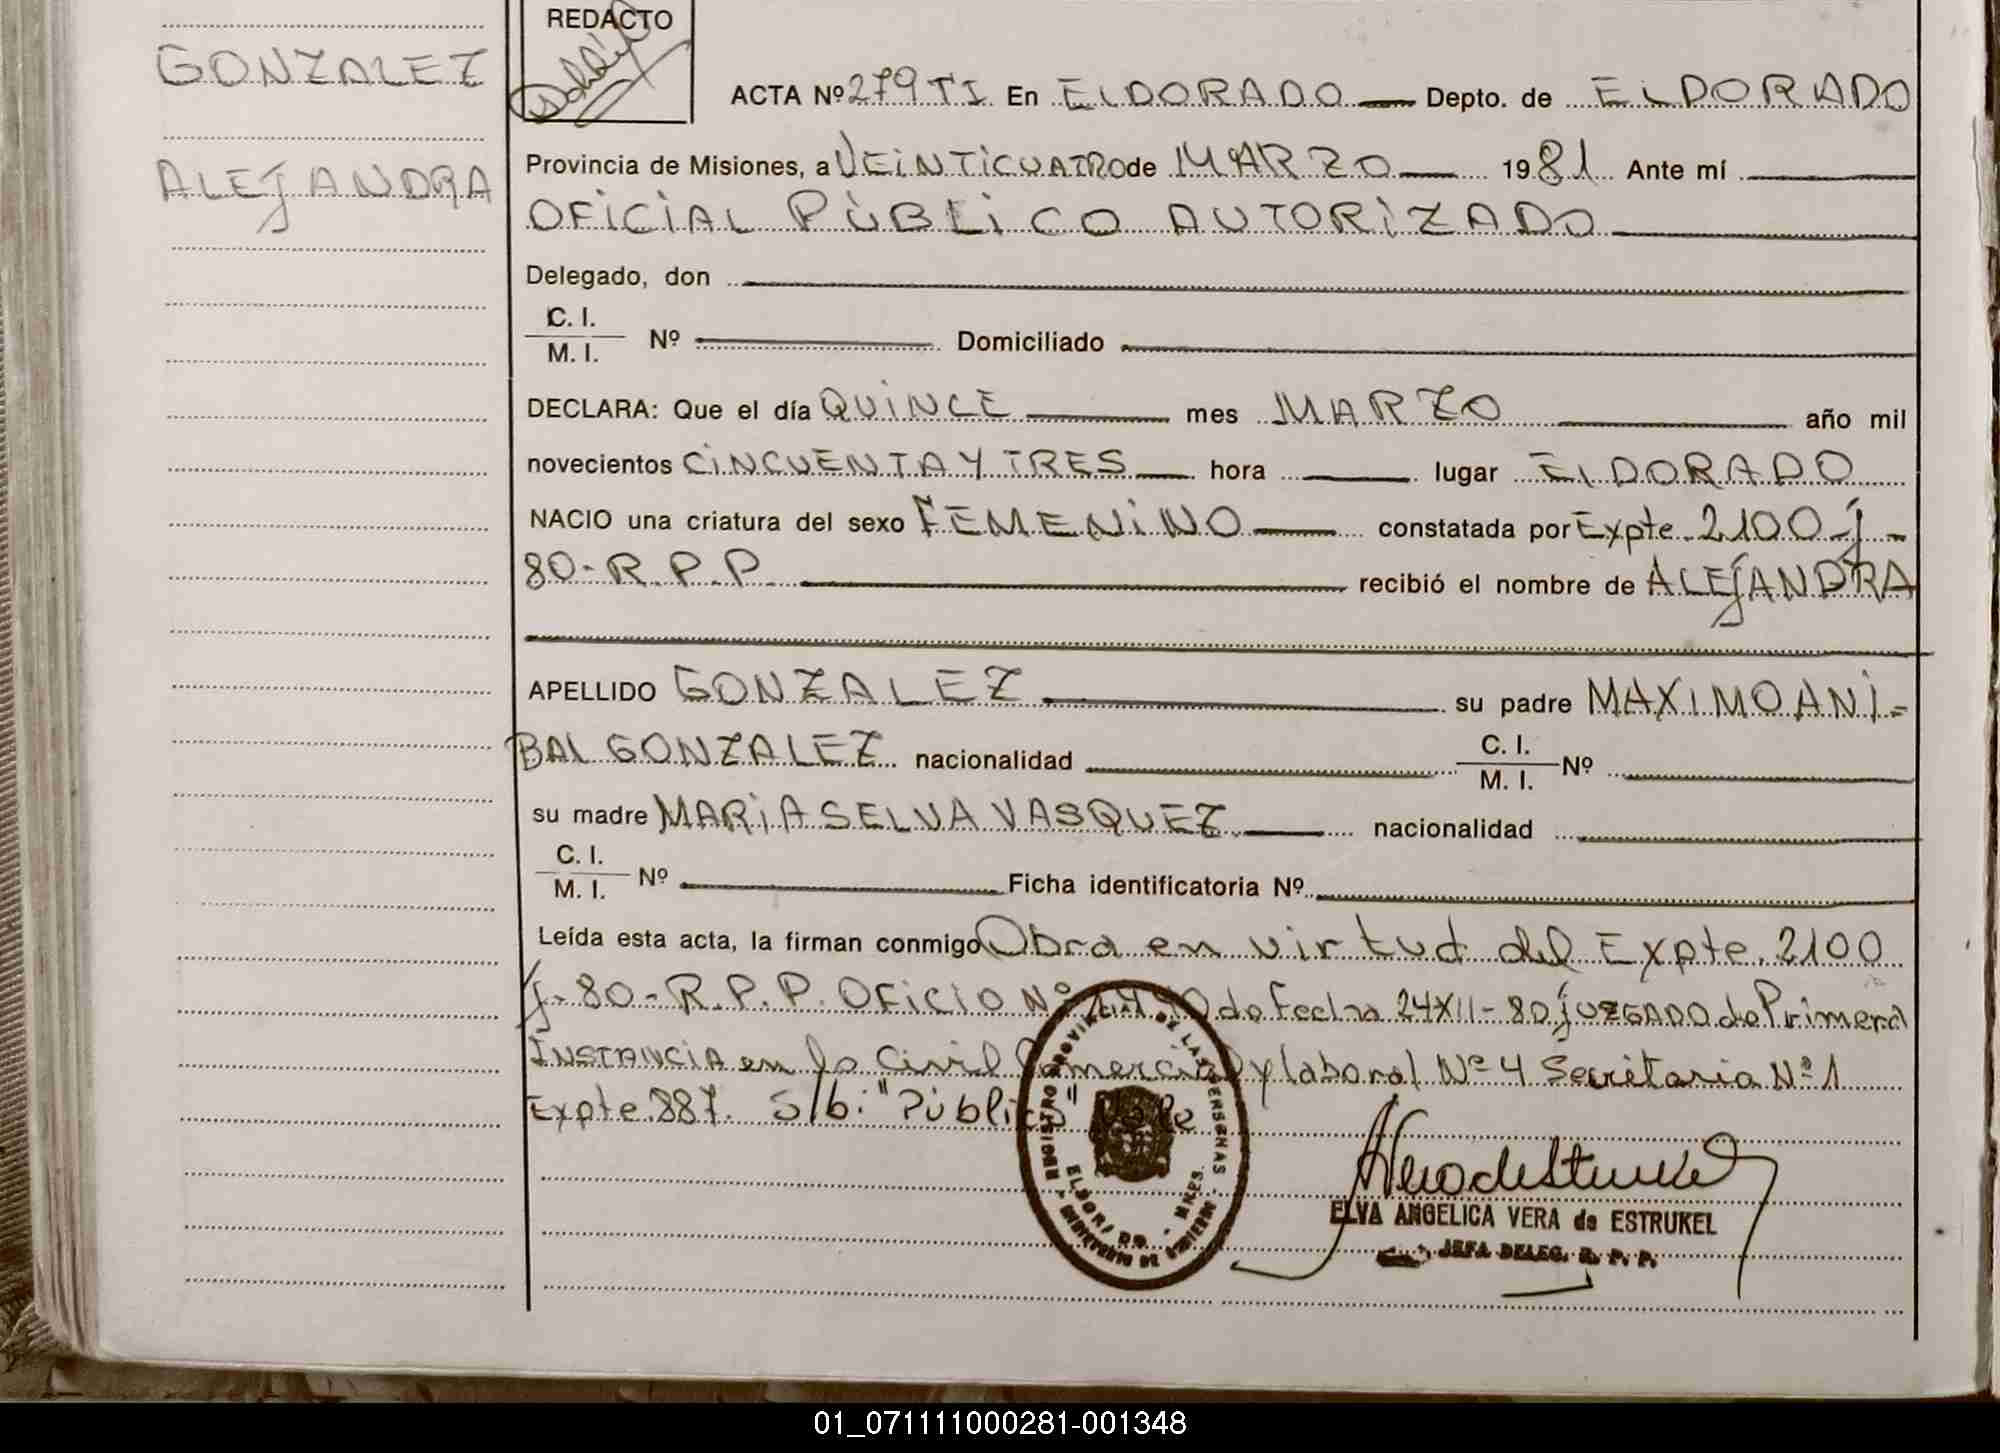 REDACTO
GONZALEZ
ALEJANDRA
ACTA Nº 279 TI. En ELDORADO Depto. de ELDORADO
Provincia de Misiones, a VEINTICUATRO de MARZO 1981 Ante mí
OFICIAL PÚBLICO AUTORIZADO
Delegado, don
C. I.
M. I. Nº Domiciliado
DECLARA: Que el día QUINCE mes MARZO año mil
novecientos CINCUENTA Y TRES hora lugar ELDORADO
NACIO una criatura del sexo FEMENINO constatada por Expte. 2100-J-
80-R.P.P. recibió el nombre de ALEJANDRA
APELLIDO GONZALEZ su padre MAXIMO ANI-
BAL GONZALEZ nacionalidad C. I.
M. I. Nº
su madre MARIA SELVA VASQUEZ nacionalidad
C. I.
M. I. Nº Ficha identificatoria Nº
Leída esta acta, la firman conmigo Obra en virtud del Expte. 2100
J-80-R.P.P. OFICIO Nº de Fecha 24 XII-80 JUZGADO de Primera
INSTANCIA en lo Civil Comercial y laboral Nº 4 Secretaria Nº 1
Expte 887. S/b: "Público" Vale
REGISTRO PROVINCIAL DE LAS PERSONAS
ELDORADO - MNES.
MINISTERIO DE GOBIERNO
ELVA ANGELICA VERA de ESTRUKEL
JEFA DELEG. R. P. P.
01_071111000281-001348